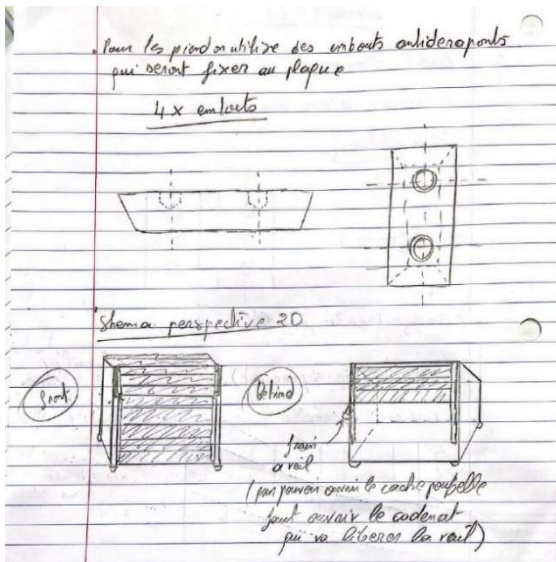 . Pour les pieds on utilise des embouts antiderapants
qui seront fixer au plaque
4 x embouts
Shema perspective 2D
Front
Behind
frein
a rail
(pour pouvoir ouvrir le cache poubelle
faut ouvrir le cadenat
qui va liberer la rail)